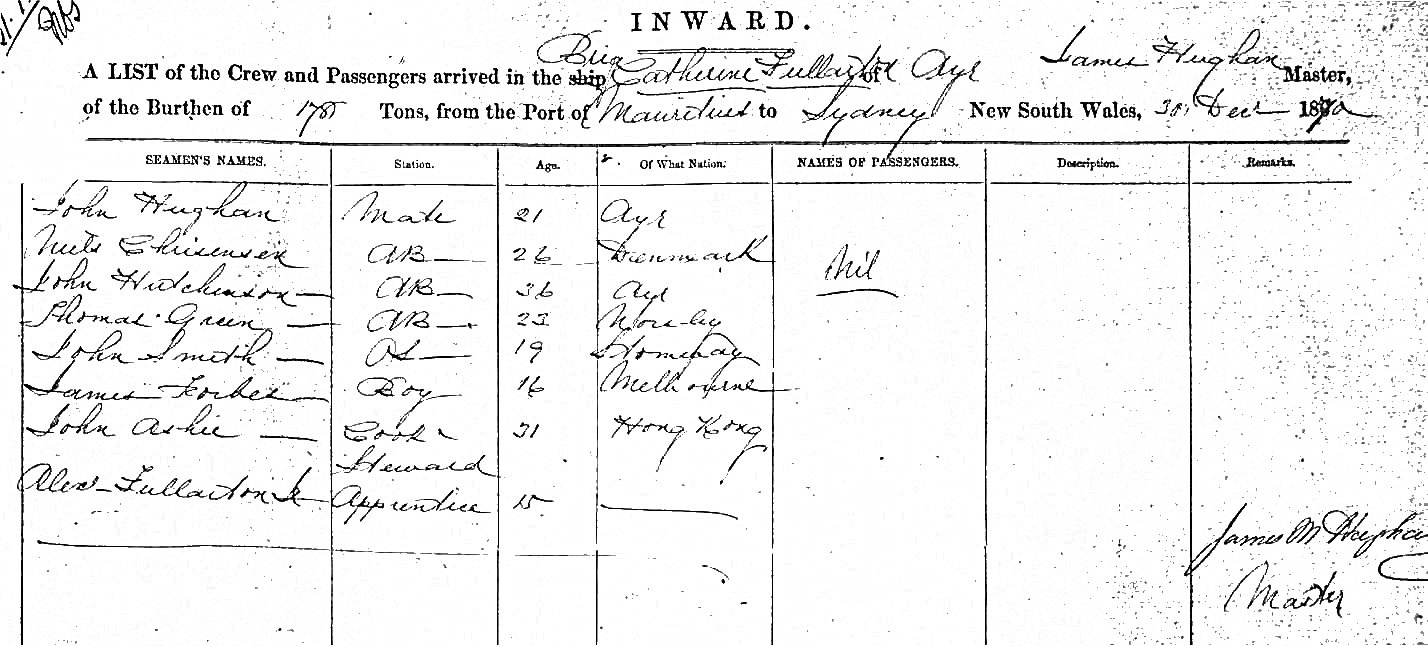 INWARD.
A LIST of the Crew and Passengers arrived in the ship Brig Catherine Fullarton of Ayr James Hughan Master,
of the Burthen of 178 Tons, from the Port of Mauritius to Sydney New South Wales, 30 Decr 1870
SEAMEN'S NAMES. Station. Age. Of What Nation. NAMES OF PASSENGERS. Description. Remarks.
John Hughan Mate 21 Ayr
Niels Chrisensen AB 26 Denmark Nil
John Hutchinson AB 36 Ayr
Thomas Green AB 23
John Smith OS 19 Stornoway
James Forbes Boy 16 Melbourne
John Ashie Cook & 31 Hong Kong
Steward
Alexr Fullarton Jr Apprentice 15
James M Hughan
Master